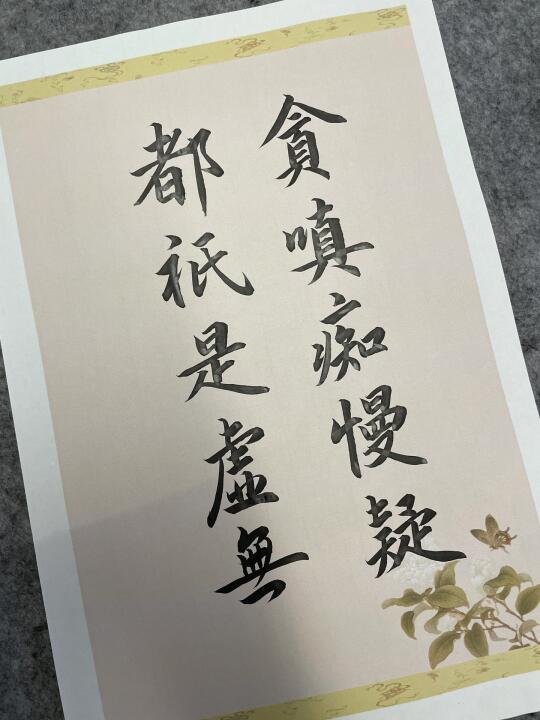 貪嗔痴慢疑
都祇是虛無